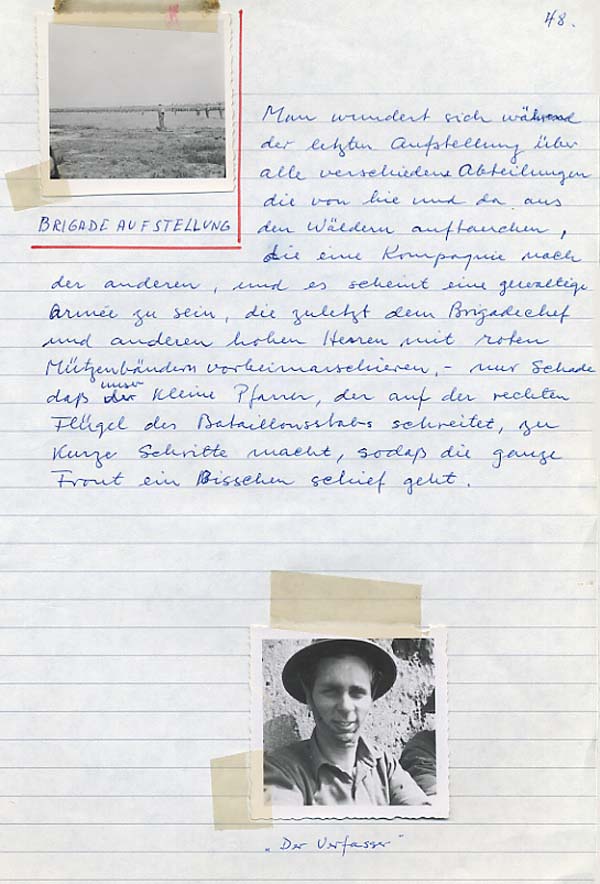 48.
Man wundert sich während
der letzten Aufstellung über
alle verschiedene Abteilungen
die von hie und da aus
den Wäldern auftauchen,
BRIGADEAUFSTELLUNG
die eine Kompagnie nach
der anderen, und es scheint eine gewaltige
Armée zu sein, die zuletzt dem Brigadechef
und anderen hohen Herren mit roten
Mützenbändern vorbeimarschieren, - nur Schade
daß unser kleine Pfarrer, der auf der rechten
Flügel des Bataillonsstabs schreitet, zu
kurze Schritte macht, sodaß die ganze
Front ein Bisschen schief geht.
„Der Verfasser"